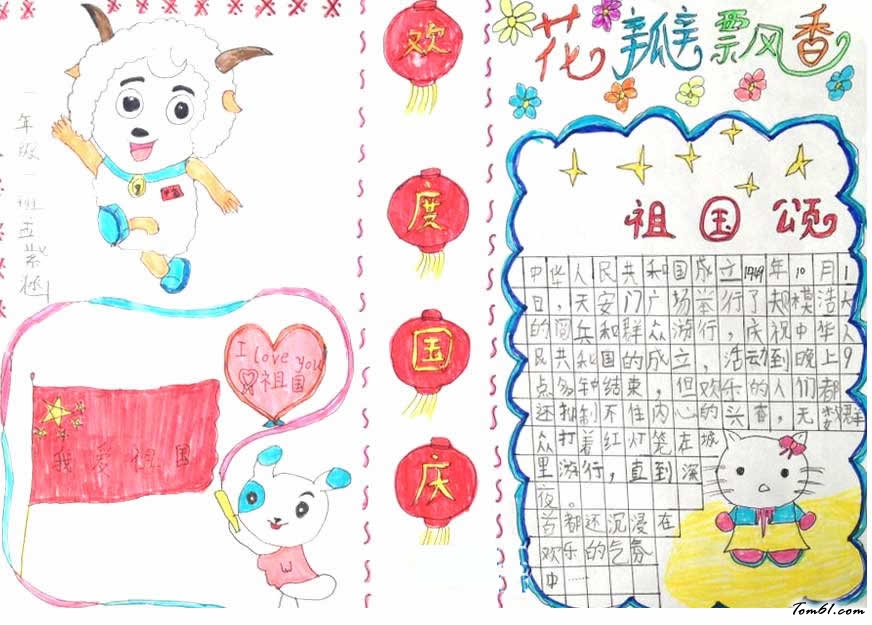 一年级一班
我爱祖国
I love you
祖国
欢
度
国
庆
花瓣飘香
祖国颂
中华人民共和国成立1949年10月1
日，天安门广场举行了规模浩大
的阅兵和群众游行，庆祝中华人
民共和国的成立，活动到晚上9
点多钟结束，但欢乐的人们都
还抑制不住内心的兴奋，无数群
众打着红灯笼在城
里游行，直到深
夜。
首都还沉浸在
欢乐的气氛
中……
Tom61.com